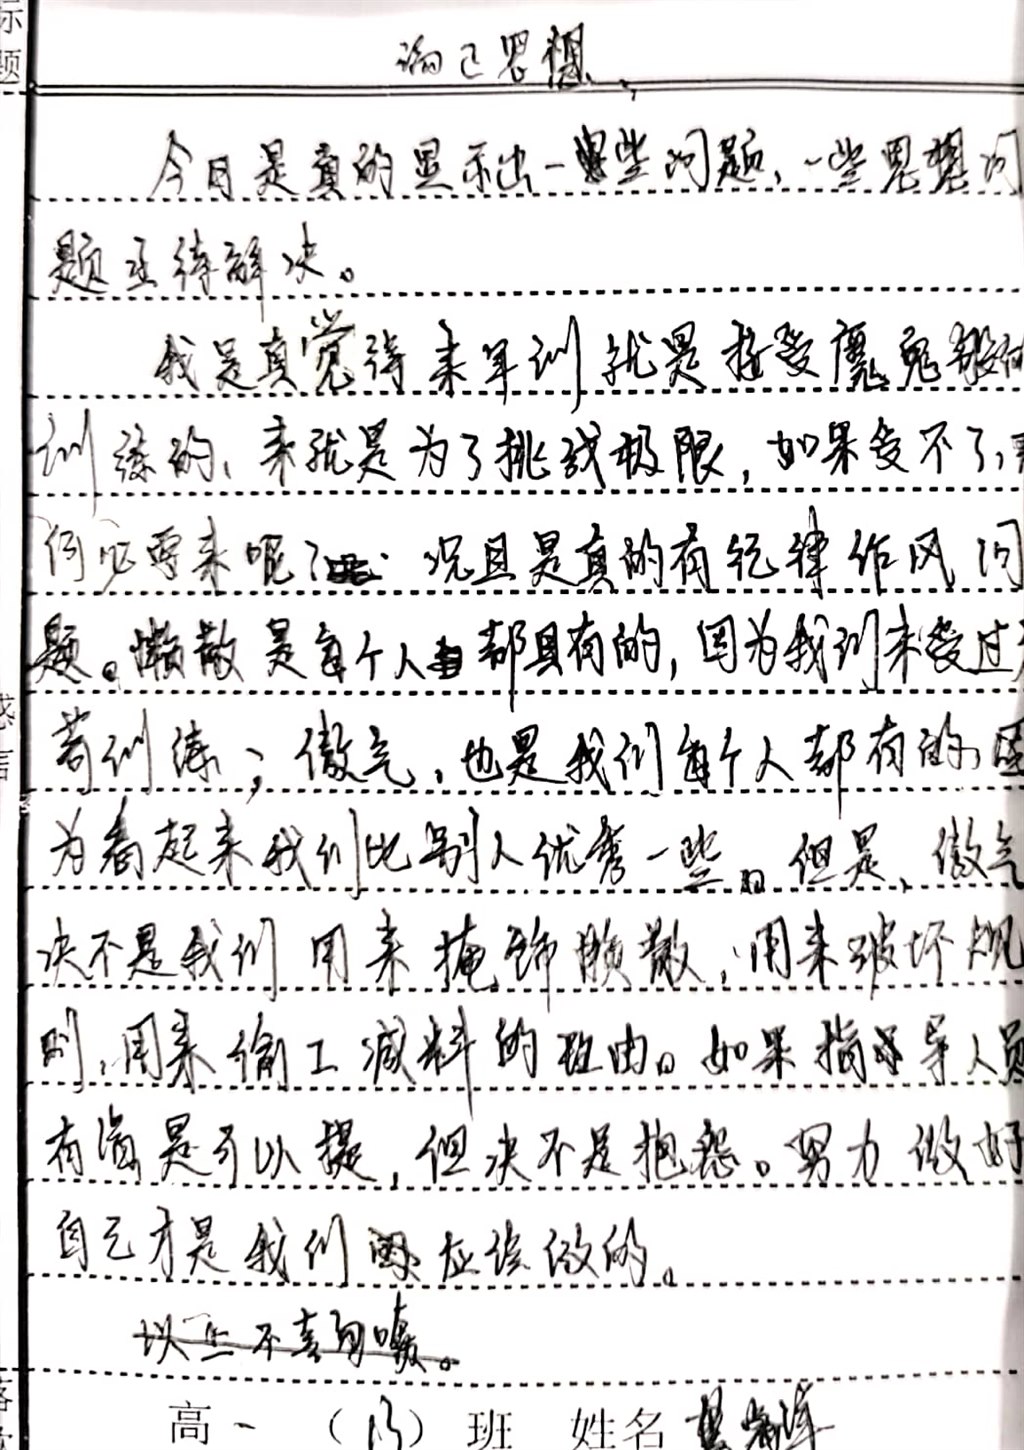 标题
论己思想
今日是真的显示出一些问题，一些思想问
题亟待解决。
我是真觉得来军训就是接受魔鬼般的
训练的，来就是为了挑战极限，如果受不了，
何必要来呢？况且是真的有纪律作风问
题。懒散是每个人都具有的，因为我们未受过
苛训练；傲气，也是我们每个人都有的，因
为看起来我们比别人优秀一些。但是，傲气
决不是我们用来掩饰懒散，用来破坏规
则，用来偷工减料的理由。如果指导人员
有误是可以提，但决不是抱怨。努力做好
自己才是我们应该做的。
以上不喜勿喷。
感言
高一（13）班 姓名